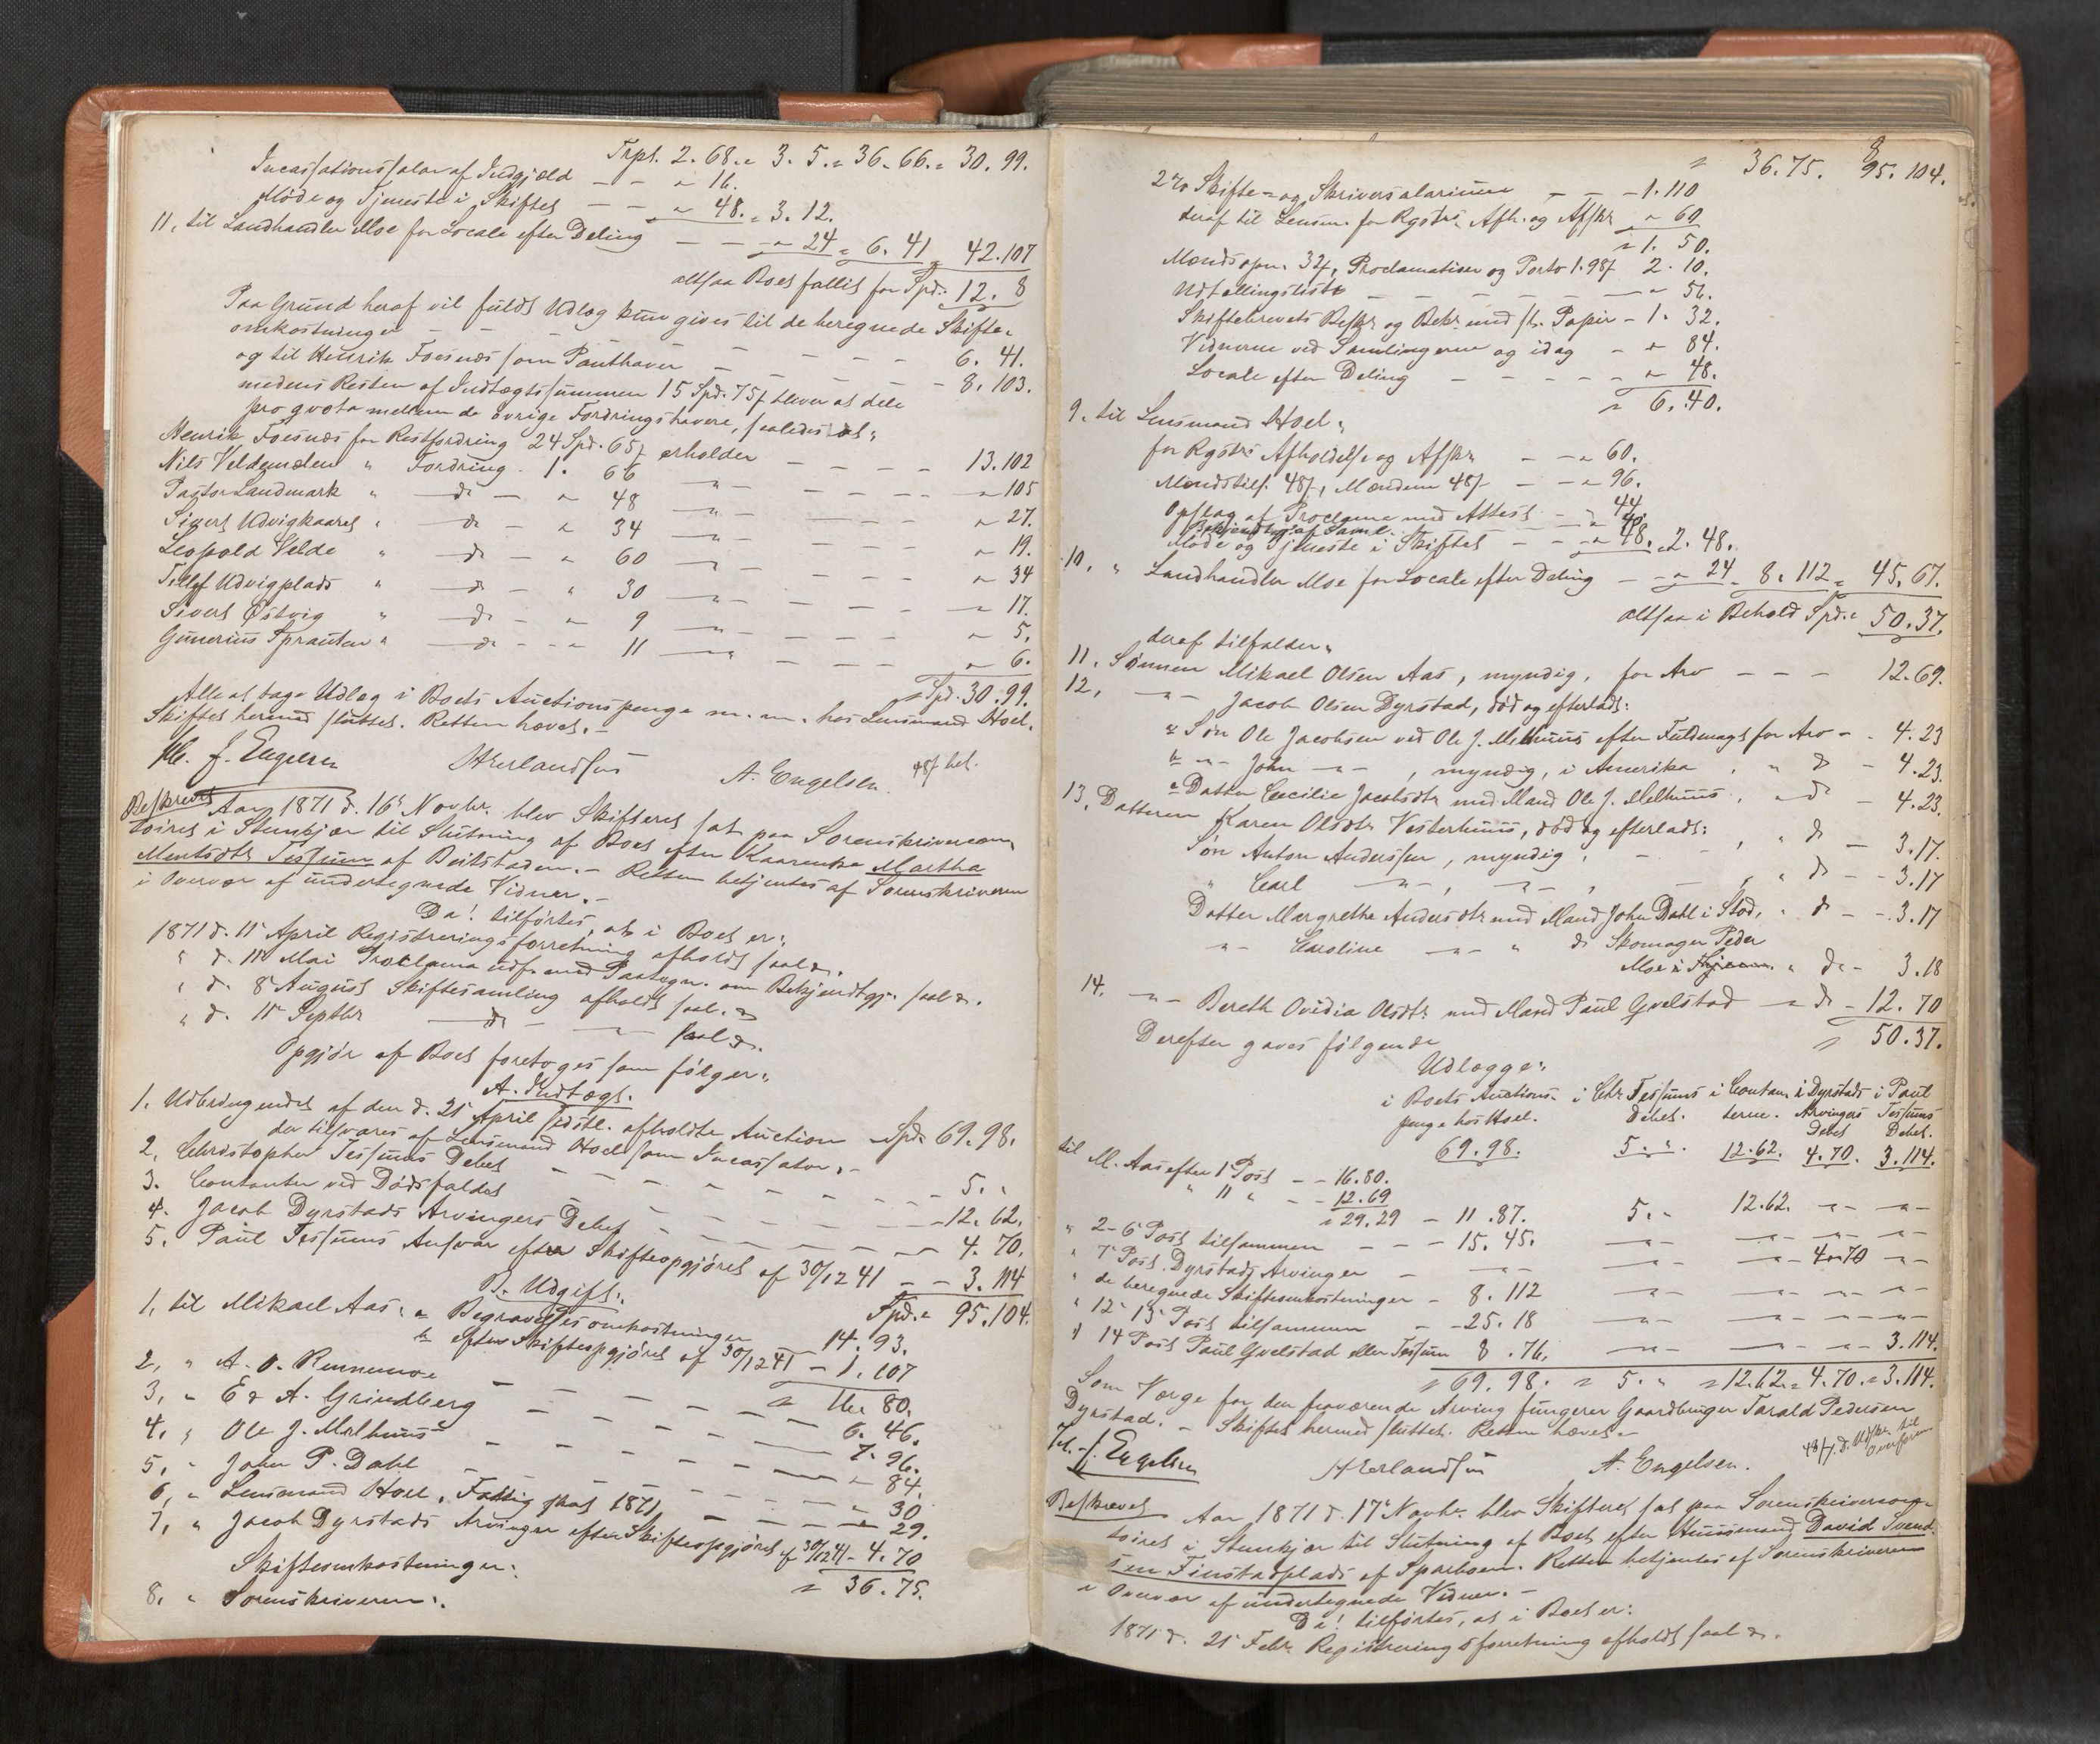 Trpt. 2. 68. " 3. 5. " 36. 66. " 30. 99.
Incassationssalær af Indgjæld — — " 16.
Møde og Tjeneste i Skiftet — — " 48. " 3. 12.
11, til Landhandler Moe for Locale efter Deling — — " 24 " 6. 41 " 42. 107
altsaa Boet fallit for Spd. 12. 8
Paa Grund heraf vil fuldt Udlæg kun gives til de beregnede Skifte-
omkostninger — — — — — 6. 41.
og til Henrik Fosnæs som Panthaver — — — — 8. 103.
medens Resten af Indtægtssummen 15 Spd. 75 ß bliver at dele
pro qvota mellem de øvrige Fordringshavere, saaledes at:
Henrik Fosnæs for Restfordring 24 Spd. 65 ß erholder — — — — 13. 102
Nils Veldemælen " Fordring 1. 66 — " — — — — " 105
Pastor Landmark " — do — " 48 — " — — — — " 27.
Sivert Udvigkaaret " — do — " 34 — " — — — — " 19.
Leopold Velde " — do — " 60 — " — — — — " 34
Tellef Udvigplads " — do — " 30 — " — — — — " 17.
Sivert Østvig " — do — " 9 — " — — — — " 5.
Gunerius Sprauten " — do — " 11 — " — — — — " 6.
Spd. 30. 99.
Alle at tage Udlæg i Boets Auctionspenge m. m. hos Lensmand Hoel.
Skiftet hermed sluttet. Retten hævet. —
J. Engelsen HErlandsen A. Engelsen. 48 ß bet.
Beskrevet
Aar 1871 d. 16de Novbr. blev Skifteret sat paa Sorenskrivercon-
toiret i Stenkjær til Slutning af Boet efter Kaarenke Martha
Mentsdtr Tessum af Beitstaden. — Retten betjentes af Sorenskriveren
i Overvær af undertegnede Vidner. —
Da! tilførtes, at i Boet er:
1871 d. 11 April Registreringsforretning afholdt saal.
" d. 11 Mai Proclama udf. med Paategn. om Bekjendtgj. saal.
" d. 8 August Skiftesamling afholdt saal.
" d. 11 Septbr — do — — saal.
Opgjør af Boet foretoges som følger:
A. Indtægt.
1. Udbringendet af den d. 25 April sidstl. afholdte Auction — Spd. 69. 98.
der tilsvares af Lensmand Hoel som Incassator. —
2. Christopher Tessums Debet — — — — — 5. "
3. Contanter ved Dødsfaldet — — — — — 12. 62.
4. Jacob Dyrstads Arvingers Debet — — — — — 4. 70.
5. Paul Tessums Ansvar efter Skifteopgjøret af 30/12 41 — — 3. 114
Spd. 95. 104.
B. Udgift.
1. til Mikael Aas: a Begravelsesomkostninger — 14. 93.
b efter Skifteopgjøret af 30/12 41 — 1. 107
" 16. 80.
2, " A. O. Rennemo — — — — 6. 46.
3, " E & A. Grindberg — — — — 7. 96.
4, " Ole J. Melhuus — — — — " 84.
5, " John P. Dahl — — — — " 30
6, " Lensmand Hoel, Fattigskat 1871 — — — " 29.
7, " Jacob Dyrstads Arvinger efter Skifteopgjøret af 30/12 41 — 4. 70
" 36. 75.
Skifteomkostninger:
8, " Sorenskriveren:
" 36. 75. 95. 104.
2 % Skifte- og Skriversalarium — — — 1. 110
deraf til Lensm. for Rgstrs Afh. og Afskr " 60
" 1. 50.
Mændsopn. 32 ß, Proclamatiser og Porto 1. 98 ß 2. 10.
Udtællingsliste — — — — — " 56.
Skiftebrevets Beskr og Bekr med st. Papir — 1. 32.
Vidnerne ved Samlingerne og idag — " 84.
Locale efter Deling — — — — " 48.
" 6. 40.
9. til Lensmand Hoel:
for Rgstrs Afholdelse og Afskr — — " 60.
Mændstils. 48 ß, Mændene 48 ß — — " 96.
Opslag af Proclama med Attest — " 44
Bekjendtgj. af Saml.
Møde og Tjeneste i Skiftet — — " 48. " 2. 48.
10. " Landhandler Moe for Locale efter Deling — " 24 " 8. 112 " 45. 67.
altsaa i Behold Spd. 50. 37.
deraf tilfalder:
11. Sønnen Mikael Olsen Aas, myndig, for Arv — — — 12. 69.
12, — " — Jacob Olsen Dyrstad, død og efterladt:
a Søn Ole Jacobsen ved Ole J. Melhuus efter Fuldmagt for Arv — 4. 23
b — " — John — " — , myndig, i Amerika, " do — 4. 23.
c Datter Cecilie Jacobsdtr med Mand Ole J. Melhuus, " do — 4. 23.
13. Datteren Karen Olsdtr Vesterhuus, død og efterladt:
Søn Anton Anderssen, myndig, — — , " do — 3. 17.
" Carl — " — , — " — , — , " do — — 3. 17
Datter Margrethe Andersdtr med Mand John Dahl i Stod, " do — — 3. 17
— " — Caroline — " — " do Skomager Peder
Moe " do — 3. 18
14. — " — Bereth Ovidia Olsdtr med Mand Paul Gvelstad — " do — 12. 70
" 50. 37.
Derefter gaves følgende
Udlægge:
i Boets Auctions- i Chr Tessums i Contan- i Dyrstads i Paul
penge hos Hoel. Debet. terne. Arvingers Tessums
Debet Debet.
69. 98. 5. " 12. 62. 4. 70. 3. 114.
til M. Aas efter 1 Post — — 16. 80.
" 11 " — — 12. 69
" 29. 29 — 11. 87. 5. " 12. 62. — " — — " —
" 2-6 Post tilsammen — — — 15. 45. — " — — " — — " — — " —
" 7 Post. Dyrstads Arvinger — — " — — " — — " — 4. 70 — " —
" de beregnede Skifteomkostninger — 8. 112 — " — — " — — " — — " —
" 12-13 Post tilsammen — — 25. 18 — " — — " — — " — — " —
" 14 Post Paul Gvelstad eller Tessum 8. 76. — " — — " — — " — 3. 114.
" 69. 98. " 5. " " 12. 62. " 4. 70. " 3. 114.
Som Værge for den fraværende Arving fungerer Gaardbruger Tarald Pedersen
Dyrstad. — Skiftet hermed sluttet. Retten hævet. —
J. Engelsen HErlandsen A. Engelsen.
Beskrevet
Aar 1871 d. 17de Novbr. blev Skifteret sat paa Sorenskrivercon-
toiret i Stenkjær til Slutning af Boet efter Huusmand David Svend-
sen Finstadplads af Sparboen. Retten betjentes af Sorenskriveren
i Overvær af undertegnede Vidner. —
Da! tilførtes, at i Boet er:
1871 d. 25 Febr. Registreringsforretning afholdt saal.